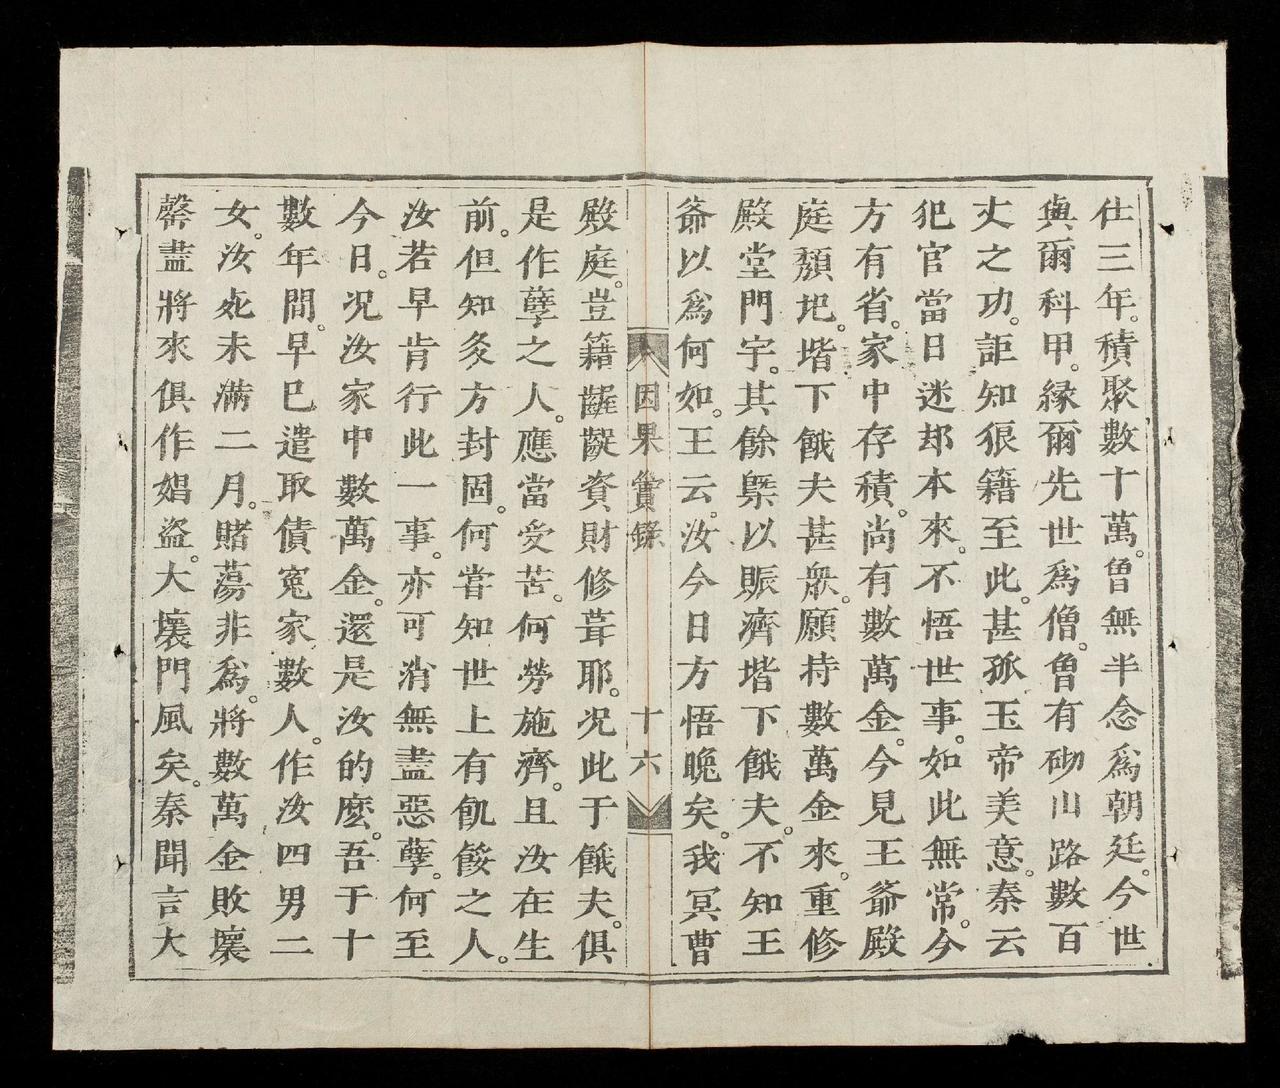 仕三年。積聚數十萬。曾無半念爲朝廷。今世
與爾科甲。緣爾先世爲僧。曾有砌山路數百
丈之功。詎知狼籍至此。甚孤玉帝美意。秦云
犯官當日迷却本來。不悟世事。如此無常。今
方有省。家中存積。尚有數萬金。今見王爺殿
庭頽圯。堦下餓夫甚衆。願持數萬金來。重修
殿堂門宇。其餘槩以賑濟堦下餓夫。不知王
爺以爲何如。王云。汝今日方悟晚矣。我冥曹
因果實錄 十六
殿庭。豈籍齷齪資財修葺耶。况此于餓夫。俱
是作孽之人。應當受苦。何勞施濟。且汝在生
前。但知灸方封固。何嘗知世上有飢餒之人。
汝若早肯行此一事。亦可消無盡惡孽。何至
今日。况汝家中數萬金。還是汝的麽。吾于十
數年間。早已遣取債寃家數人。作汝四男二
女。汝死未滿二月。賭蕩非爲。將數萬金敗壞
罄盡將來俱作娼盜。大壞門風矣。秦聞言大